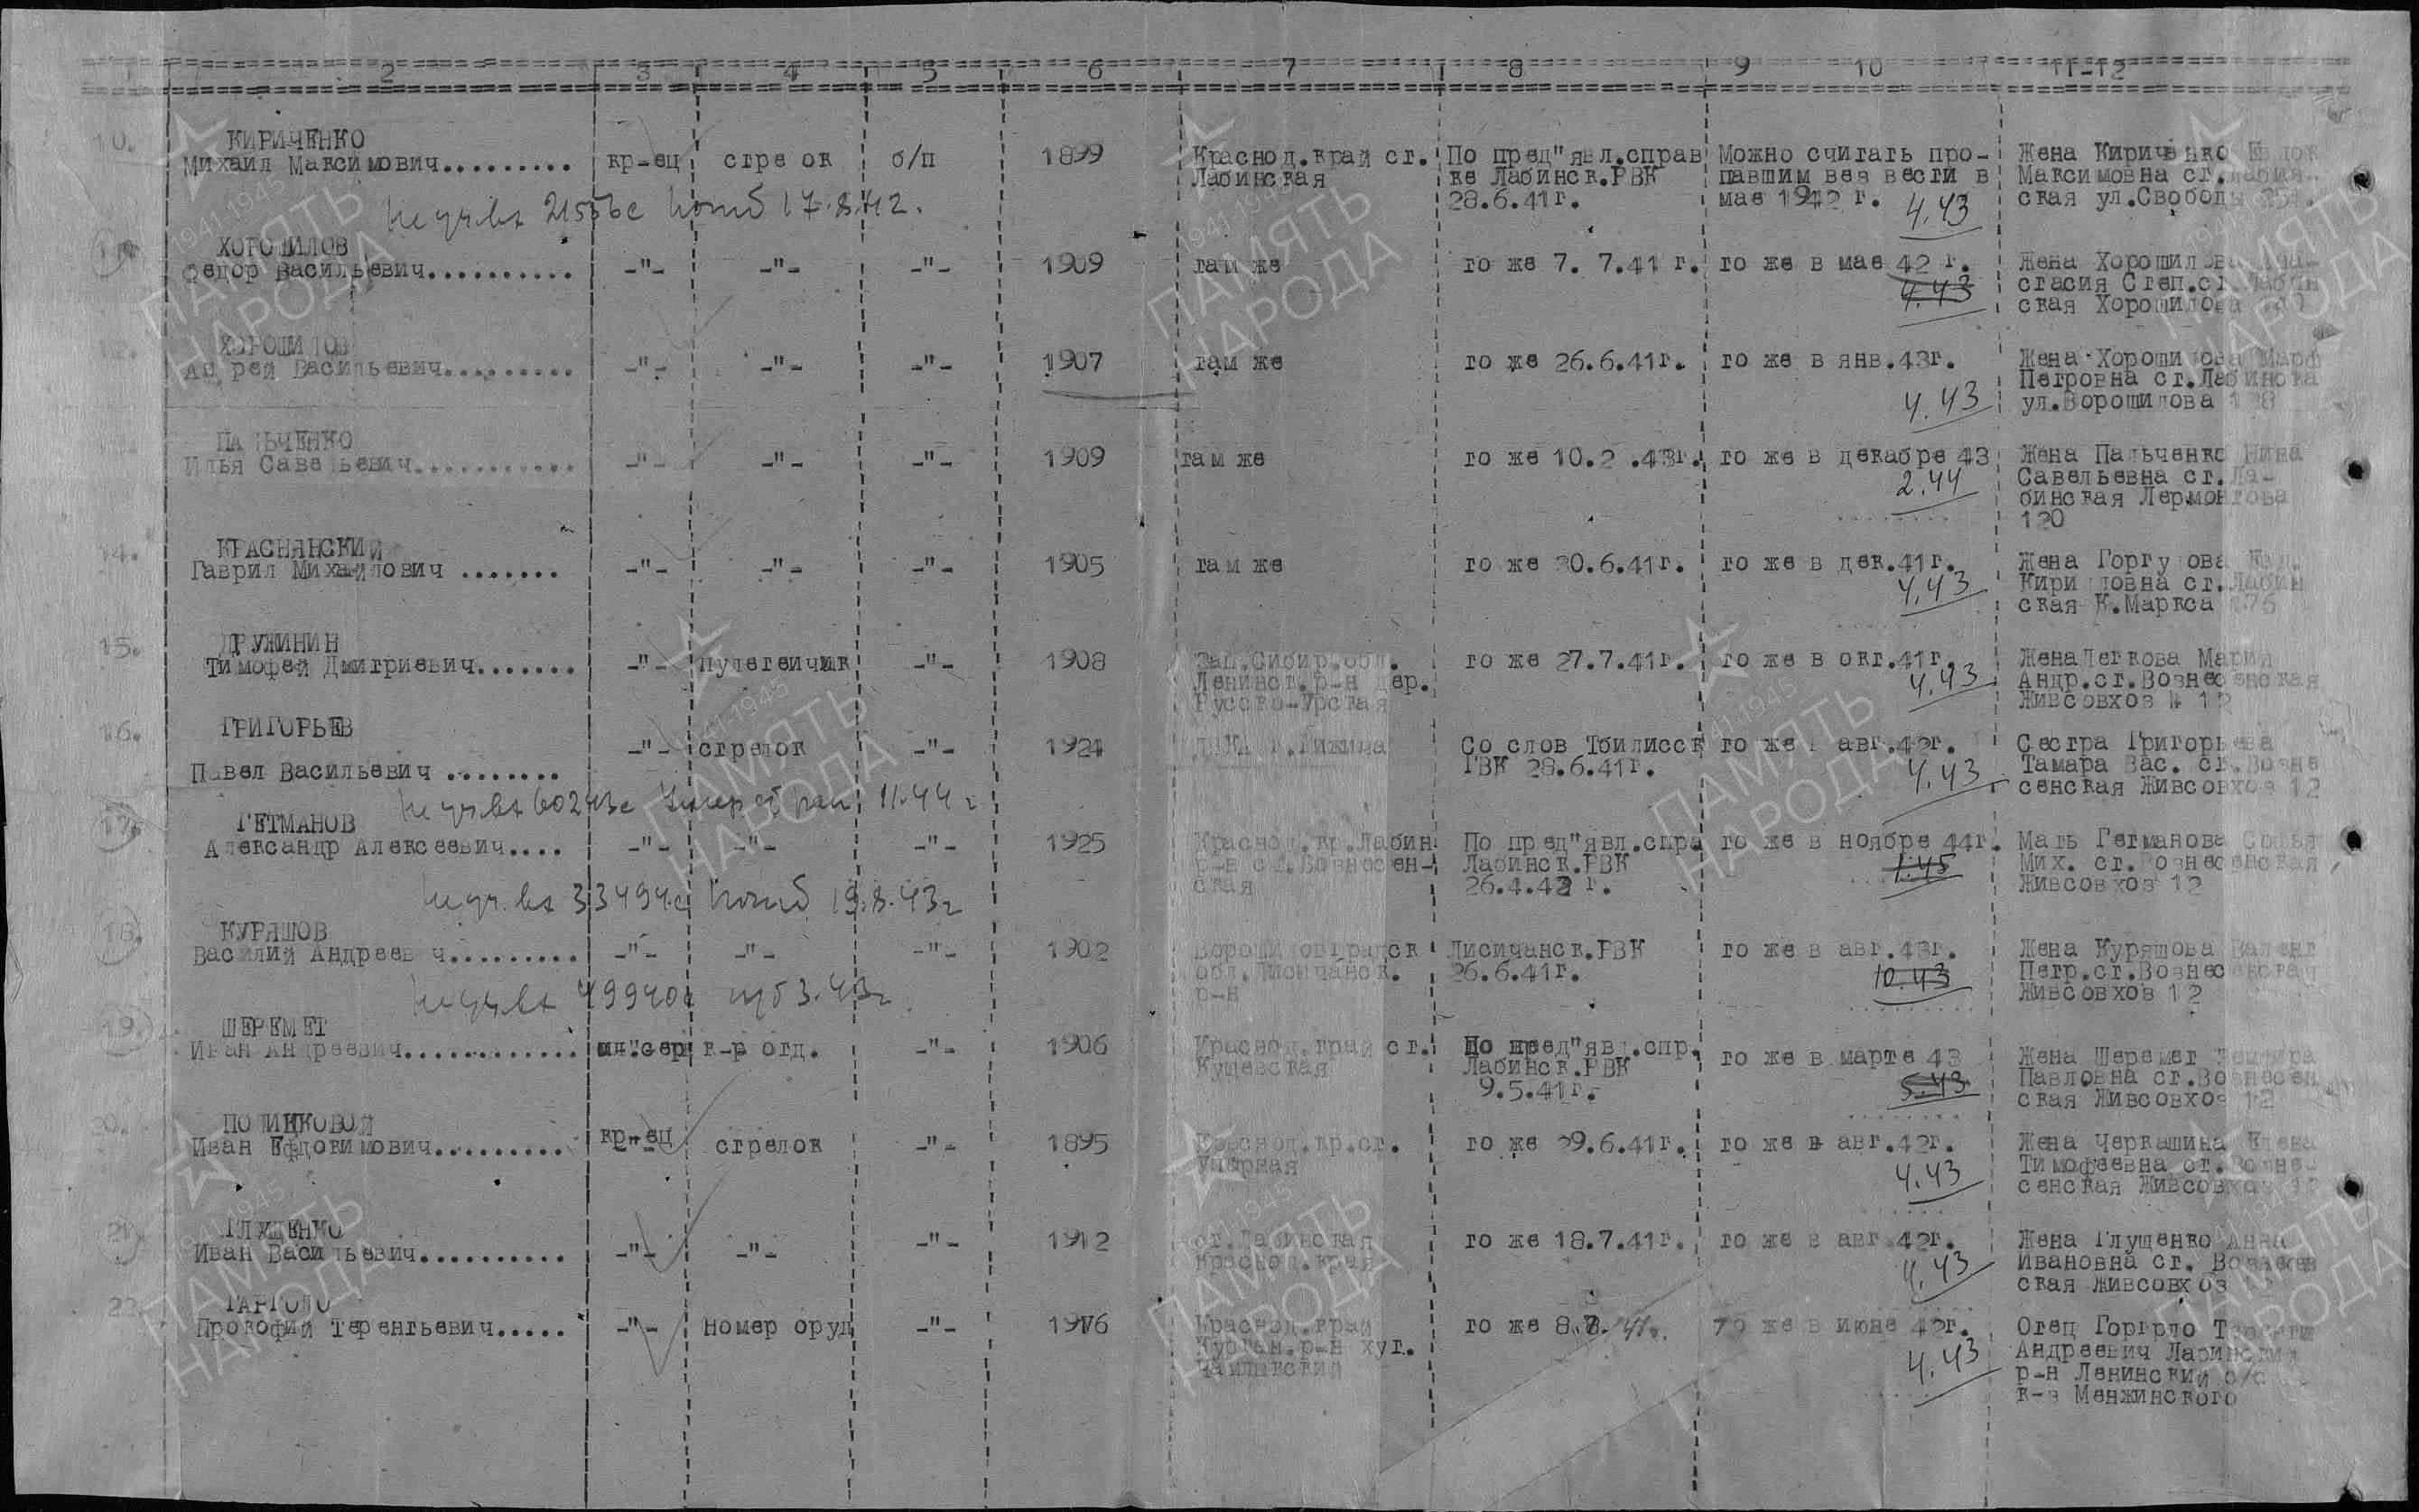 2 3 4 5 6 7 8 9 10 11-12
10. КИРИЧЕНКО
Михаил Максимович......... кр-ец стре ок б/п 1899 Краснод.край ст. По пред"явл.справ Можно считать про- Жена Кириченко Евдок
Лабинская ке Лабинск.РВК павшим без вести в Максимовна ст.Лабин
28.6.41г. мае 1942 г. 4.43 ская ул.Свободы
погиб 17.8.42.
11. ХОРОШИЛОВ
Федор Васильевич.......... -"- -"- -"- 1909 там же то же 7. 7.41 г. то же в мае 42 г. Жена Хорошилова Ана-
4.43 стасия Степ.ст.Лабин
ская Хорошилова
12. ХОРОШИЛОВ
Ан рей Васильевич......... -"- -"- -"- 1907 там же то же 26.6.41г. то же в янв.43г. Жена Хорошилова Марф
Петровна ст.Лабинска
4.43 ул.Ворошилова
ПАЛЬЧЕНКО
Илья Савельевич........... -"- -"- -"- 1909 там же то же 10.2 .43г. то же в декабре 43 Жена Пальченко Нина
2.44 Савельевна ст.Ла-
бинская Лермонтова
120
14. КРАСНЯНСКИЙ
Гаврил Михайлович ....... -"- -"- -"- 1905 там же то же 30.6.41г. то же в дек.41г. Жена Горгулова Евд.
4.43 Кирилловна ст.Лабин
ская К.Маркса 176
15. ДРУЖИНИН
Тимофей Дмитриевич....... -"- пулетейчик -"- 1908 Зап.Сибир.обл. то же 27.7.41г. то же в окт.41г. Жена Легкова Мария
Ленинст.р-н дер. 4.43 Андр.ст.Вознесенская
Русско-Урская Живсовхоз № 12
16. ГРИГОРЬЕВ
-"- стрелок -"- 1924 Со слов Тбилисск то же в авг.42г. Сестра Григорьева
Павел Васильевич ........ ГВК 28.6.41г. 4.43 Тамара Вас. ст.Возне
сенская Живсовхоз 12
60243с Умер от ран 11.44 г
17. ГЕТМАНОВ
Александр Алексеевич.... -"- -"- -"- 1925 Краснод.кр.Лабин По пред"явл.спра то же в ноябре 44г. Мать Гетманова Софья
р-н ст.Вознесен- Лабинск.РВК 1.45 Мих. ст.Вознесенская
ская 26.4.43 г. Живсовхоз 12
33494с погиб 19.8.43г
18. КУРЯШОВ
Василий Андреевич......... -"- -"- -"- 1902 Ворошиловградск Лисичанск.РВК то же в авг.43г. Жена Куряшова Валент
обл.Лисичанск. 26.6.41г. 10.43 Петр.ст.Вознесенская
р-н Живсовхоз 12
49940с 3.43г
19. ШЕРЕМЕТ
Иван Андреевич............ мл.сер к-р отд. -"- 1906 Краснод.край ст. По пред"явл.спр. то же в марте 43 Жена Шеремет
Кущевская Лабинск.РВК 5.43 Павловна ст.Вознесен
9.5.41г. ская Живсовхоз 12
20. ПОЛИЦКОВОЙ
Иван Евдокимович......... кр-ец стрелок -"- 1895 Краснод.кр.ст. то же 29.6.41г. то же в авг.42г. Жена Черкашина Елена
Упорная 4.43 Тимофеевна ст.Возне-
сенская Живсовхоз 12
21. ГЛУЩЕНКО
Иван Васильевич.......... -"- -"- -"- 1912 ст.Лабинская то же 18.7.41г. то же в авг.42г. Жена Глущенко Анна
Краснод.края 4.43 Ивановна ст. Вознесен
ская живсовхоз
22. ГАРГОЛО
Прокофий Терентьевич..... -"- номер оруд -"- 1916 Краснод.край то же 8.8.41г. то же в июне 42г. Отец Горголо
Курган.р-н хут. 4.43 Андреевич Лабинский
Чамлыкский р-н Ленинский с/с
к-з Менжинского
ПАМЯТЬ НАРОДА
1941-1945